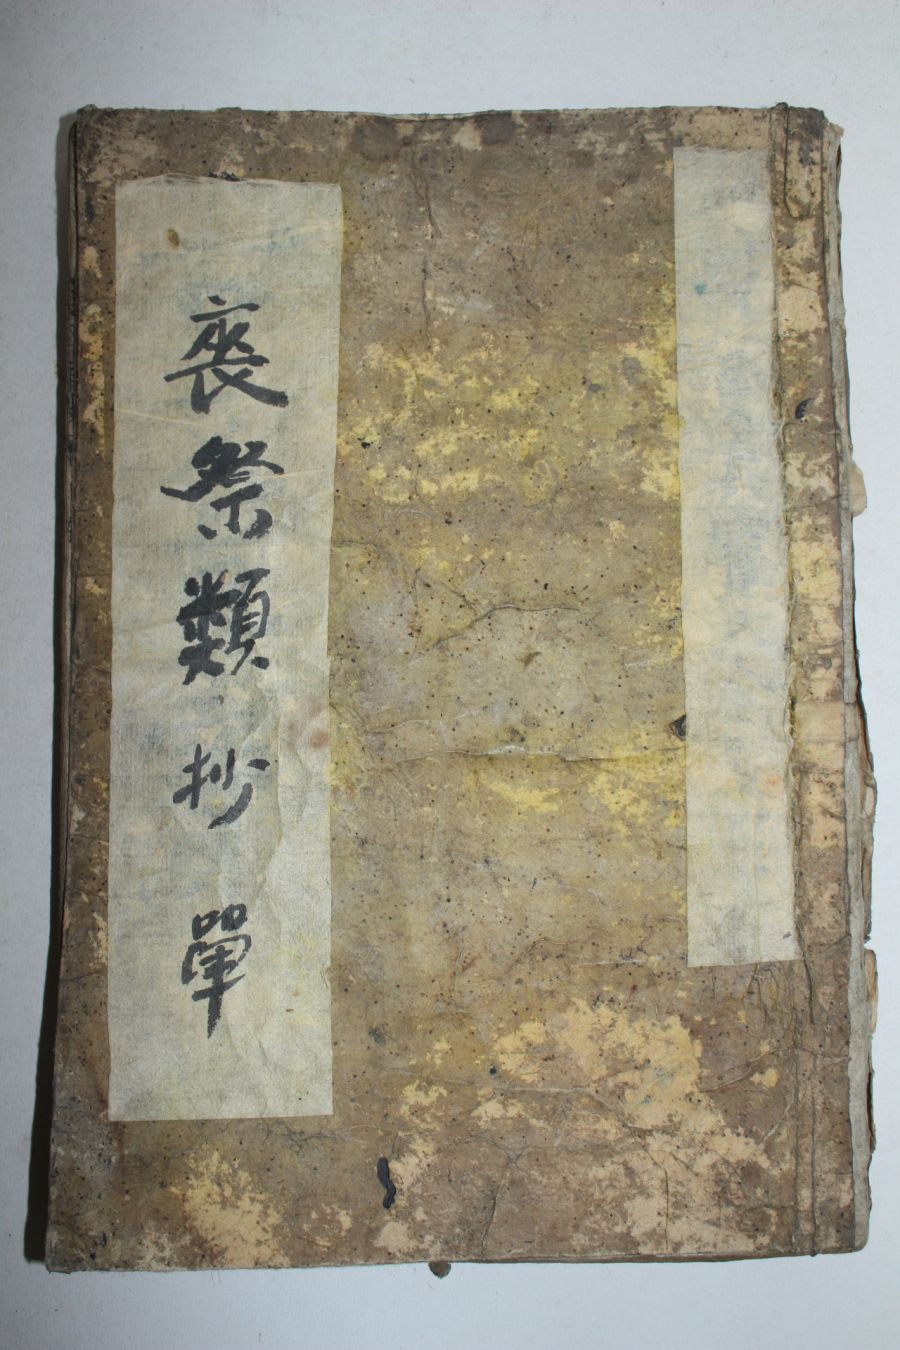 喪祭類抄單